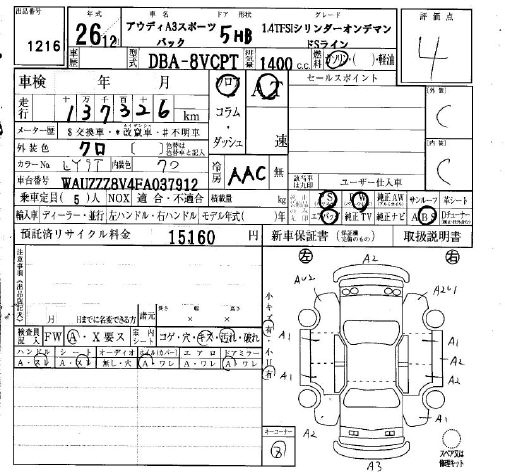 出品番号
1216
年式
26 12
車歴
車名 ドア 形状 グレード
アウディA3スポーツバック
5 HB
1.4TFSIシリンダーオンデマンドSライン
評価点
4
DBA-8VCPT
排気量 1400 C.C.
燃料 ガソリン・( )・軽油
車検 年 月
走行 137326 km
メーター歴 $ 交換車・* 改竄車・# 不明車
外装色 クロ
カラーNo. LY9T 内装色 クロ
車台番号 WAUZZZ8V4FA037912
フロア
コラム
・
ダッシュ
AT
速
冷房 AAC 無
セールスポイント
ユーザー仕入車
[外装]
C
[内装]
C
乗車定員 (5) 人 NOX 適合・不適合 積載量 kg
輸入車 ディーラー・並行 左ハンドル・右ハンドル モデル年式( )年
PS PW 純正AW サンルーフ 革シート
エアバッグ 純正TV 純正ナビ ABS
預託済リサイクル料金 15160 円
新車保証書 取扱説明書
注意事項
月 日までに名変できる方
諸元 長さ 幅 高さ
× ×
検査員記入 FW A・X要ス 車内シート コゲ・穴・キズ・汚れ・破れ
ハンドル シート オーディオ エアロ ドアミラー
A・ス A・ス 無し・穴 A・ワレ A・ワレ A・ワレ
小キズ有・小凹有
左 右
A2
AU2 A2U1
A1 A1
A1 A2
A1 A1
A2 A2
A3
コーナー
8
スペア又は
修理キット